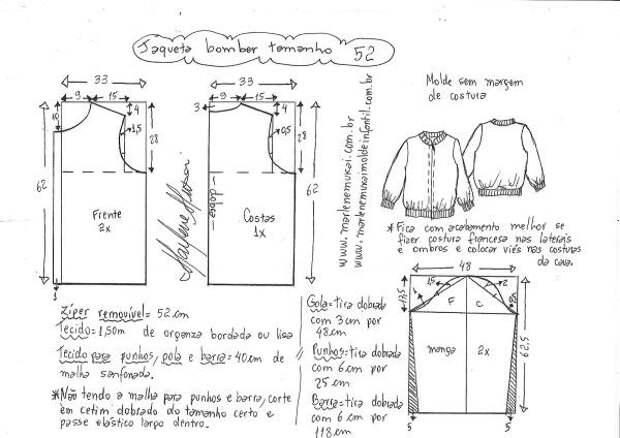 Jaqueta bomber tamanho 52
33
9
15
10
4
1,5
28
62
Frente
2x
1
33
3
9
15
4
0,5
28
62
dobra
Costas
1x
Marlene Mukai
www.marlenemukai.com.br
www.marlenemukaimoldeinfantil.com.br
Molde sem margem
de costura
*Fica com acabamento melhor se
fizer costura francesa nas laterais
e ombros e colocar viés nas costuras
da cava.
48
17,5
1,5
F
C
2
manga
2x
62,5
5
5
Zíper removível = 52 cm
Tecido = 1,50m de organza bordada ou lisa
Tecido para punhos, gola e barra = 40 cm de
malha sanfonada.
*Não tendo a malha para punhos e barra, corte
em cetim dobrado do tamanho certo e
passe elástico largo dentro.
Gola = tira dobrada
com 3 cm por
48 cm
Punhos = tira dobrada
com 6 cm por
25 cm
Barra = tira dobrada
com 6 cm por
118 cm